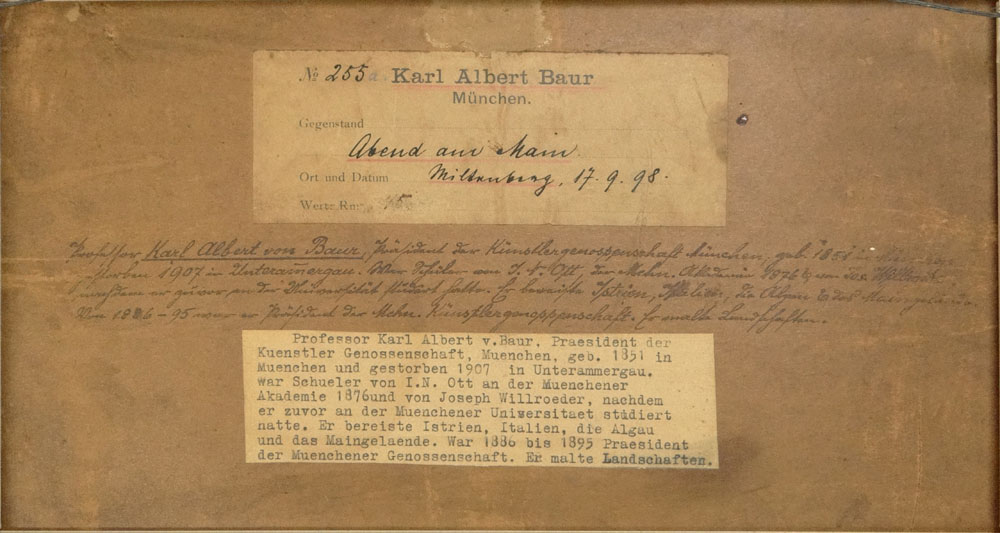 № 255a Karl Albert Baur
München.
Gegenstand
Abend am Main
Ort und Datum Miltenberg, 17.9.98.
Werte Rm:
Professor Karl Albert von Baur, Präsident der Künstlergenossenschaft München, geb. 1851 in
storben 1907 in Unterammergau. War Schüler von J. N. Ott, der Mchn. Akademie 1876 & von Jos. Willroider
nachdem er zuvor an der Universität studiert hatte. Er bereiste Istrien, Italien, die Algau & das Maingelände.
Von 1886-95 war er Präsident der Mchn. Künstlergenossenschaft. Er malte Landschaften.
Professor Karl Albert v.Baur, Praesident der
Kuenstler Genossenschaft, Muenchen, geb. 1851 in
Muenchen und gestorben 1907 in Unterammergau.
war Schueler von I.N. Ott an der Muenchener
Akademie 1876und von Joseph Willroeder, nachdem
er zuvor an der Muenchener Universitaet studiert
natte. Er bereiste Istrien, Italien, die Algau
und das Maingelaende. War 1886 bis 1895 Praesident
der Muenchener Genossenschaft. Er malte Landschaften.